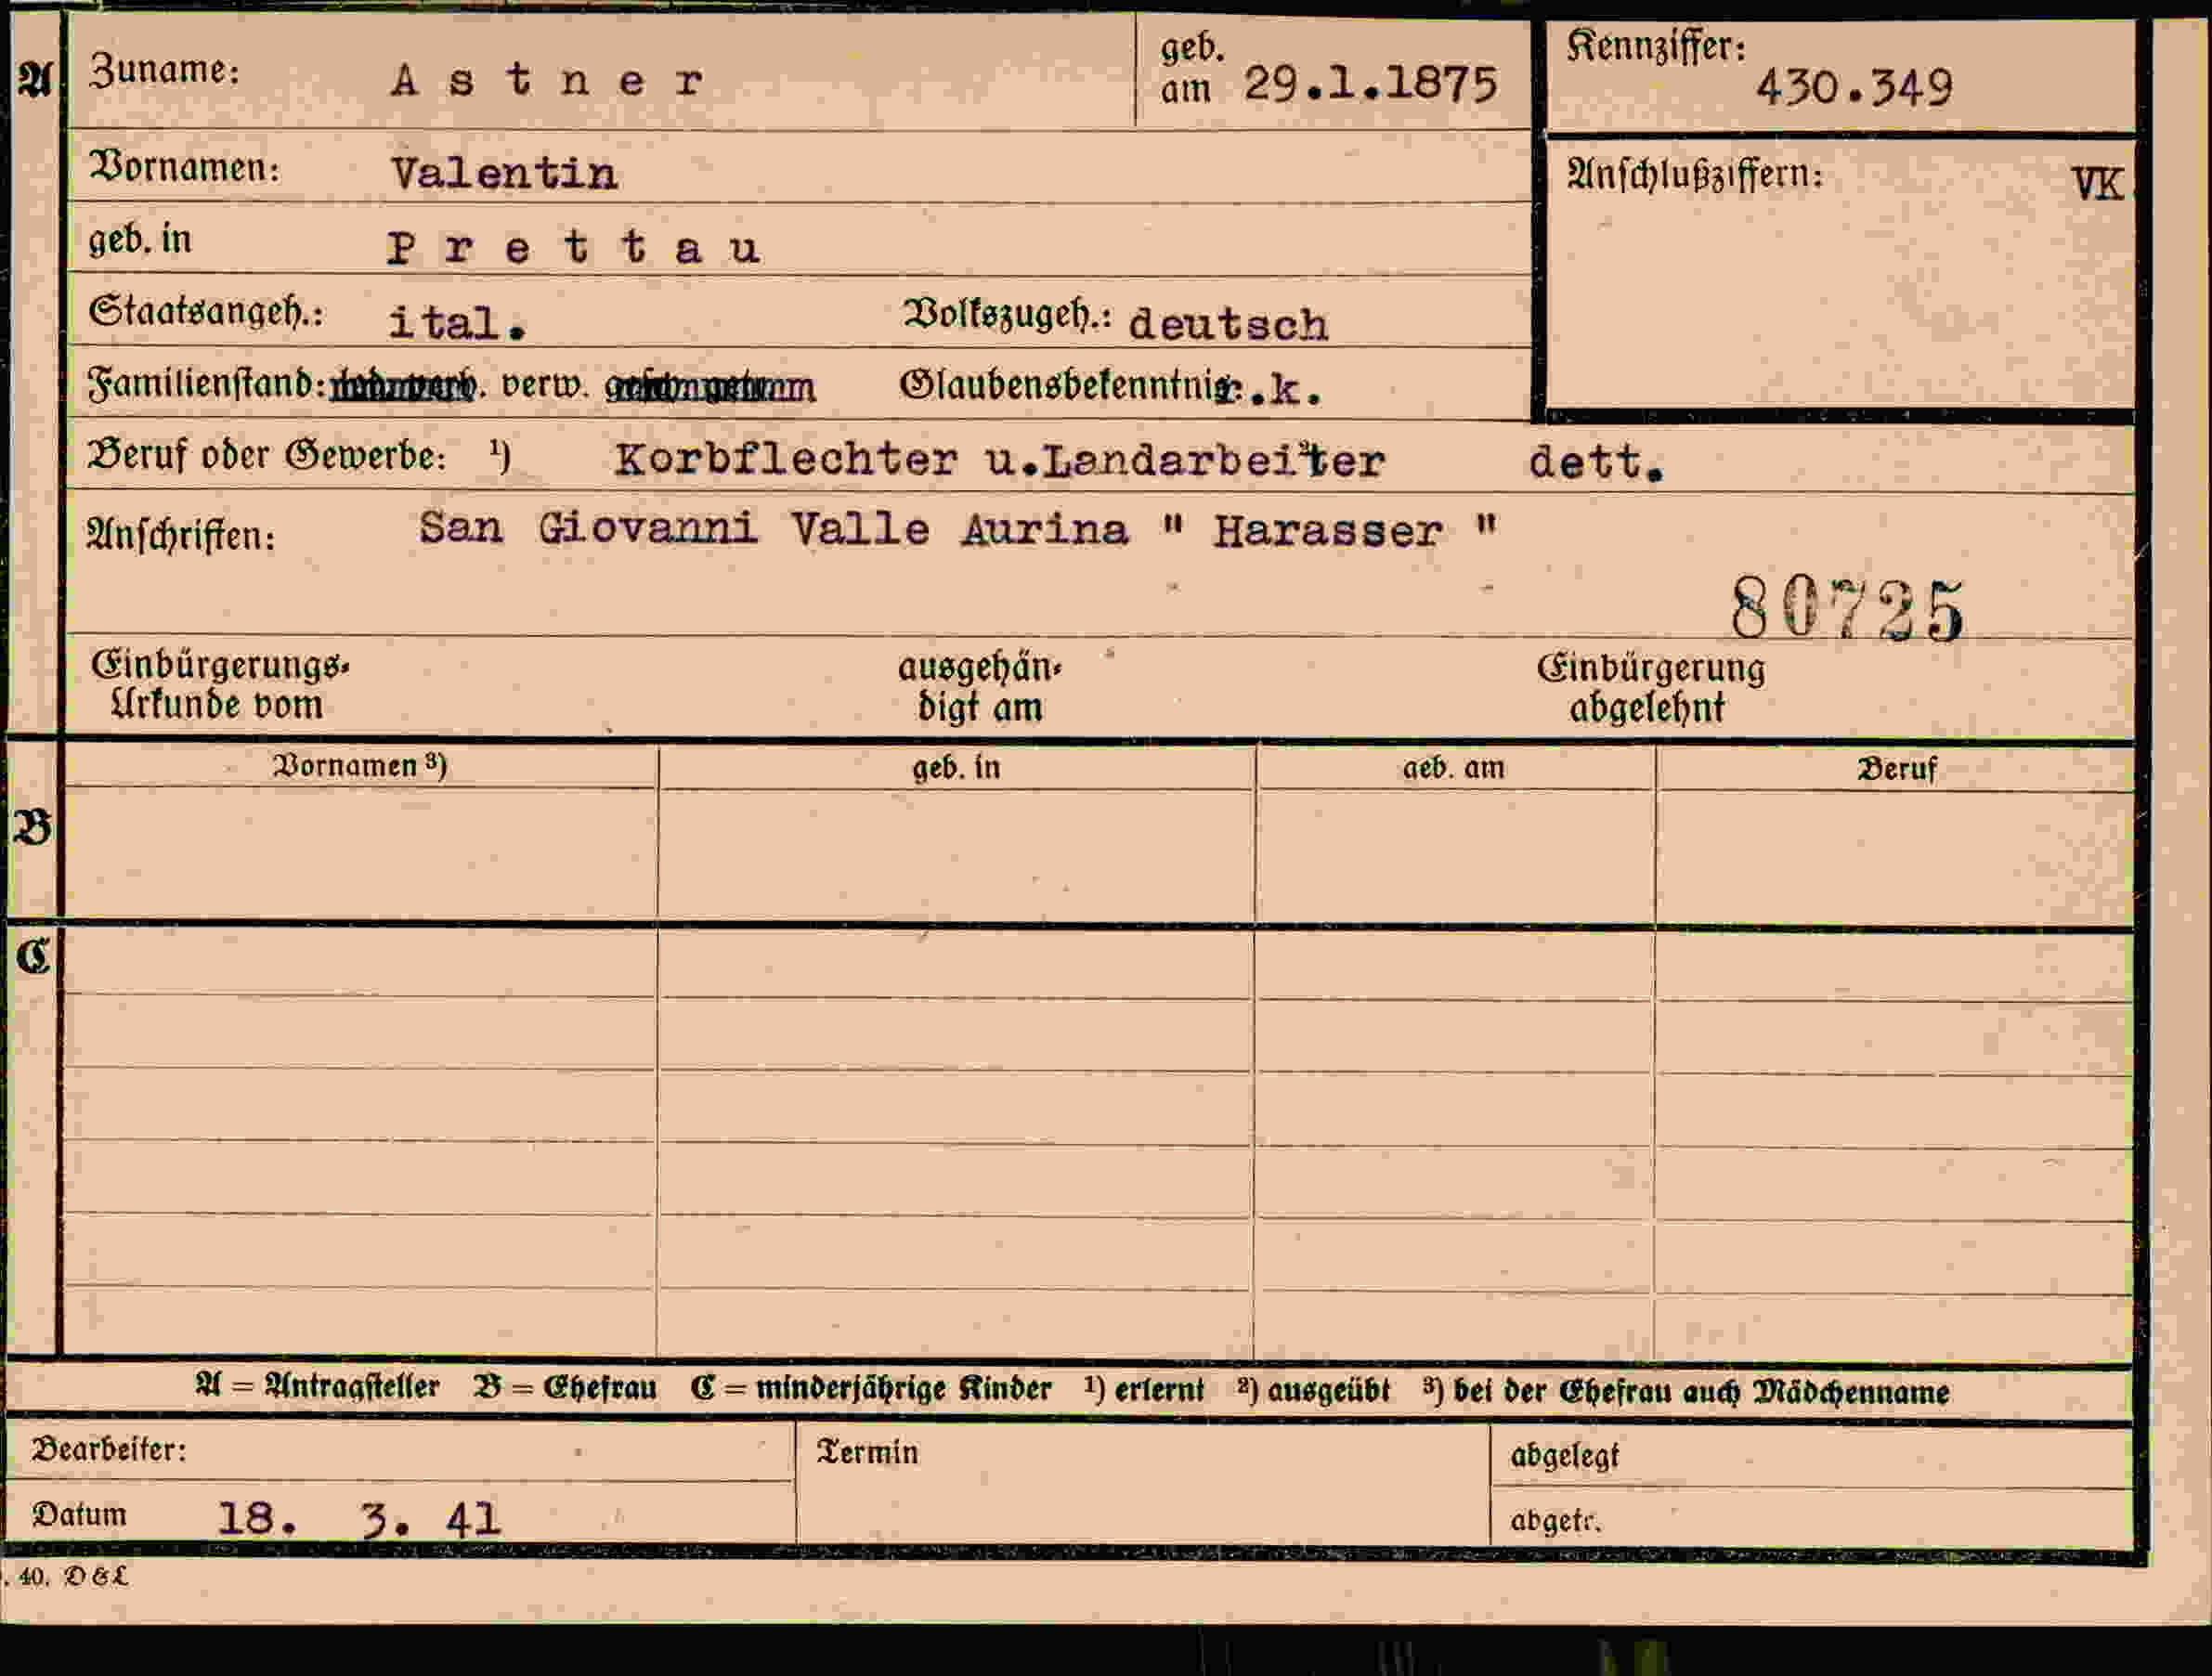 A Zuname: Astner geb. am 29.1.1875 Kennziffer: 430.349
Vornamen: Valentin Anschlußziffern: VK
geb. in Prettau
Staatsangeh.: ital. Volkszugeh.: deutsch
Familienstand: verw. Glaubensbekenntnis r.k.
Beruf oder Gewerbe: ¹) Korbflechter u.Landarbeiter ²) dett.
Anschriften: San Giovanni Valle Aurina " Harasser "
80725
Einbürgerungs-Urkunde vom ausgehändigt am Einbürgerung abgelehnt
Vornamen ³) geb. in geb. am Beruf
B
C
A = Antragsteller B = Ehefrau C = minderjährige Kinder ¹) erlernt ²) ausgeübt ³) bei der Ehefrau auch Mädchenname
Bearbeiter: Termin abgelegt
Datum 18. 3. 41 abgetr.
. 40. D & L